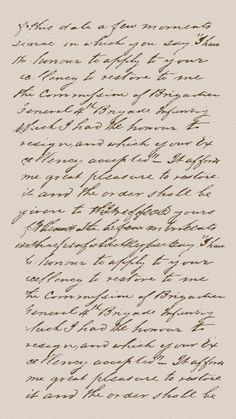 of this date a few moments
in which you say "I have
the honour to apply to your
cellency to restore to me
the Commission of Brigadier
General 4th Brigade Infantry
which I had the honour to
resign, and which your Ex
cellency accepted"— It affords
me great pleasure to restore
it and the order shall be
given to yours
"I have
the honour to apply to your
cellency to restore to me
the Commission of Brigadier
General 4th Brigade Infantry
which I had the honour to
resign, and which your Ex
cellency accepted"— It affords
me great pleasure to restore
it and the order shall be